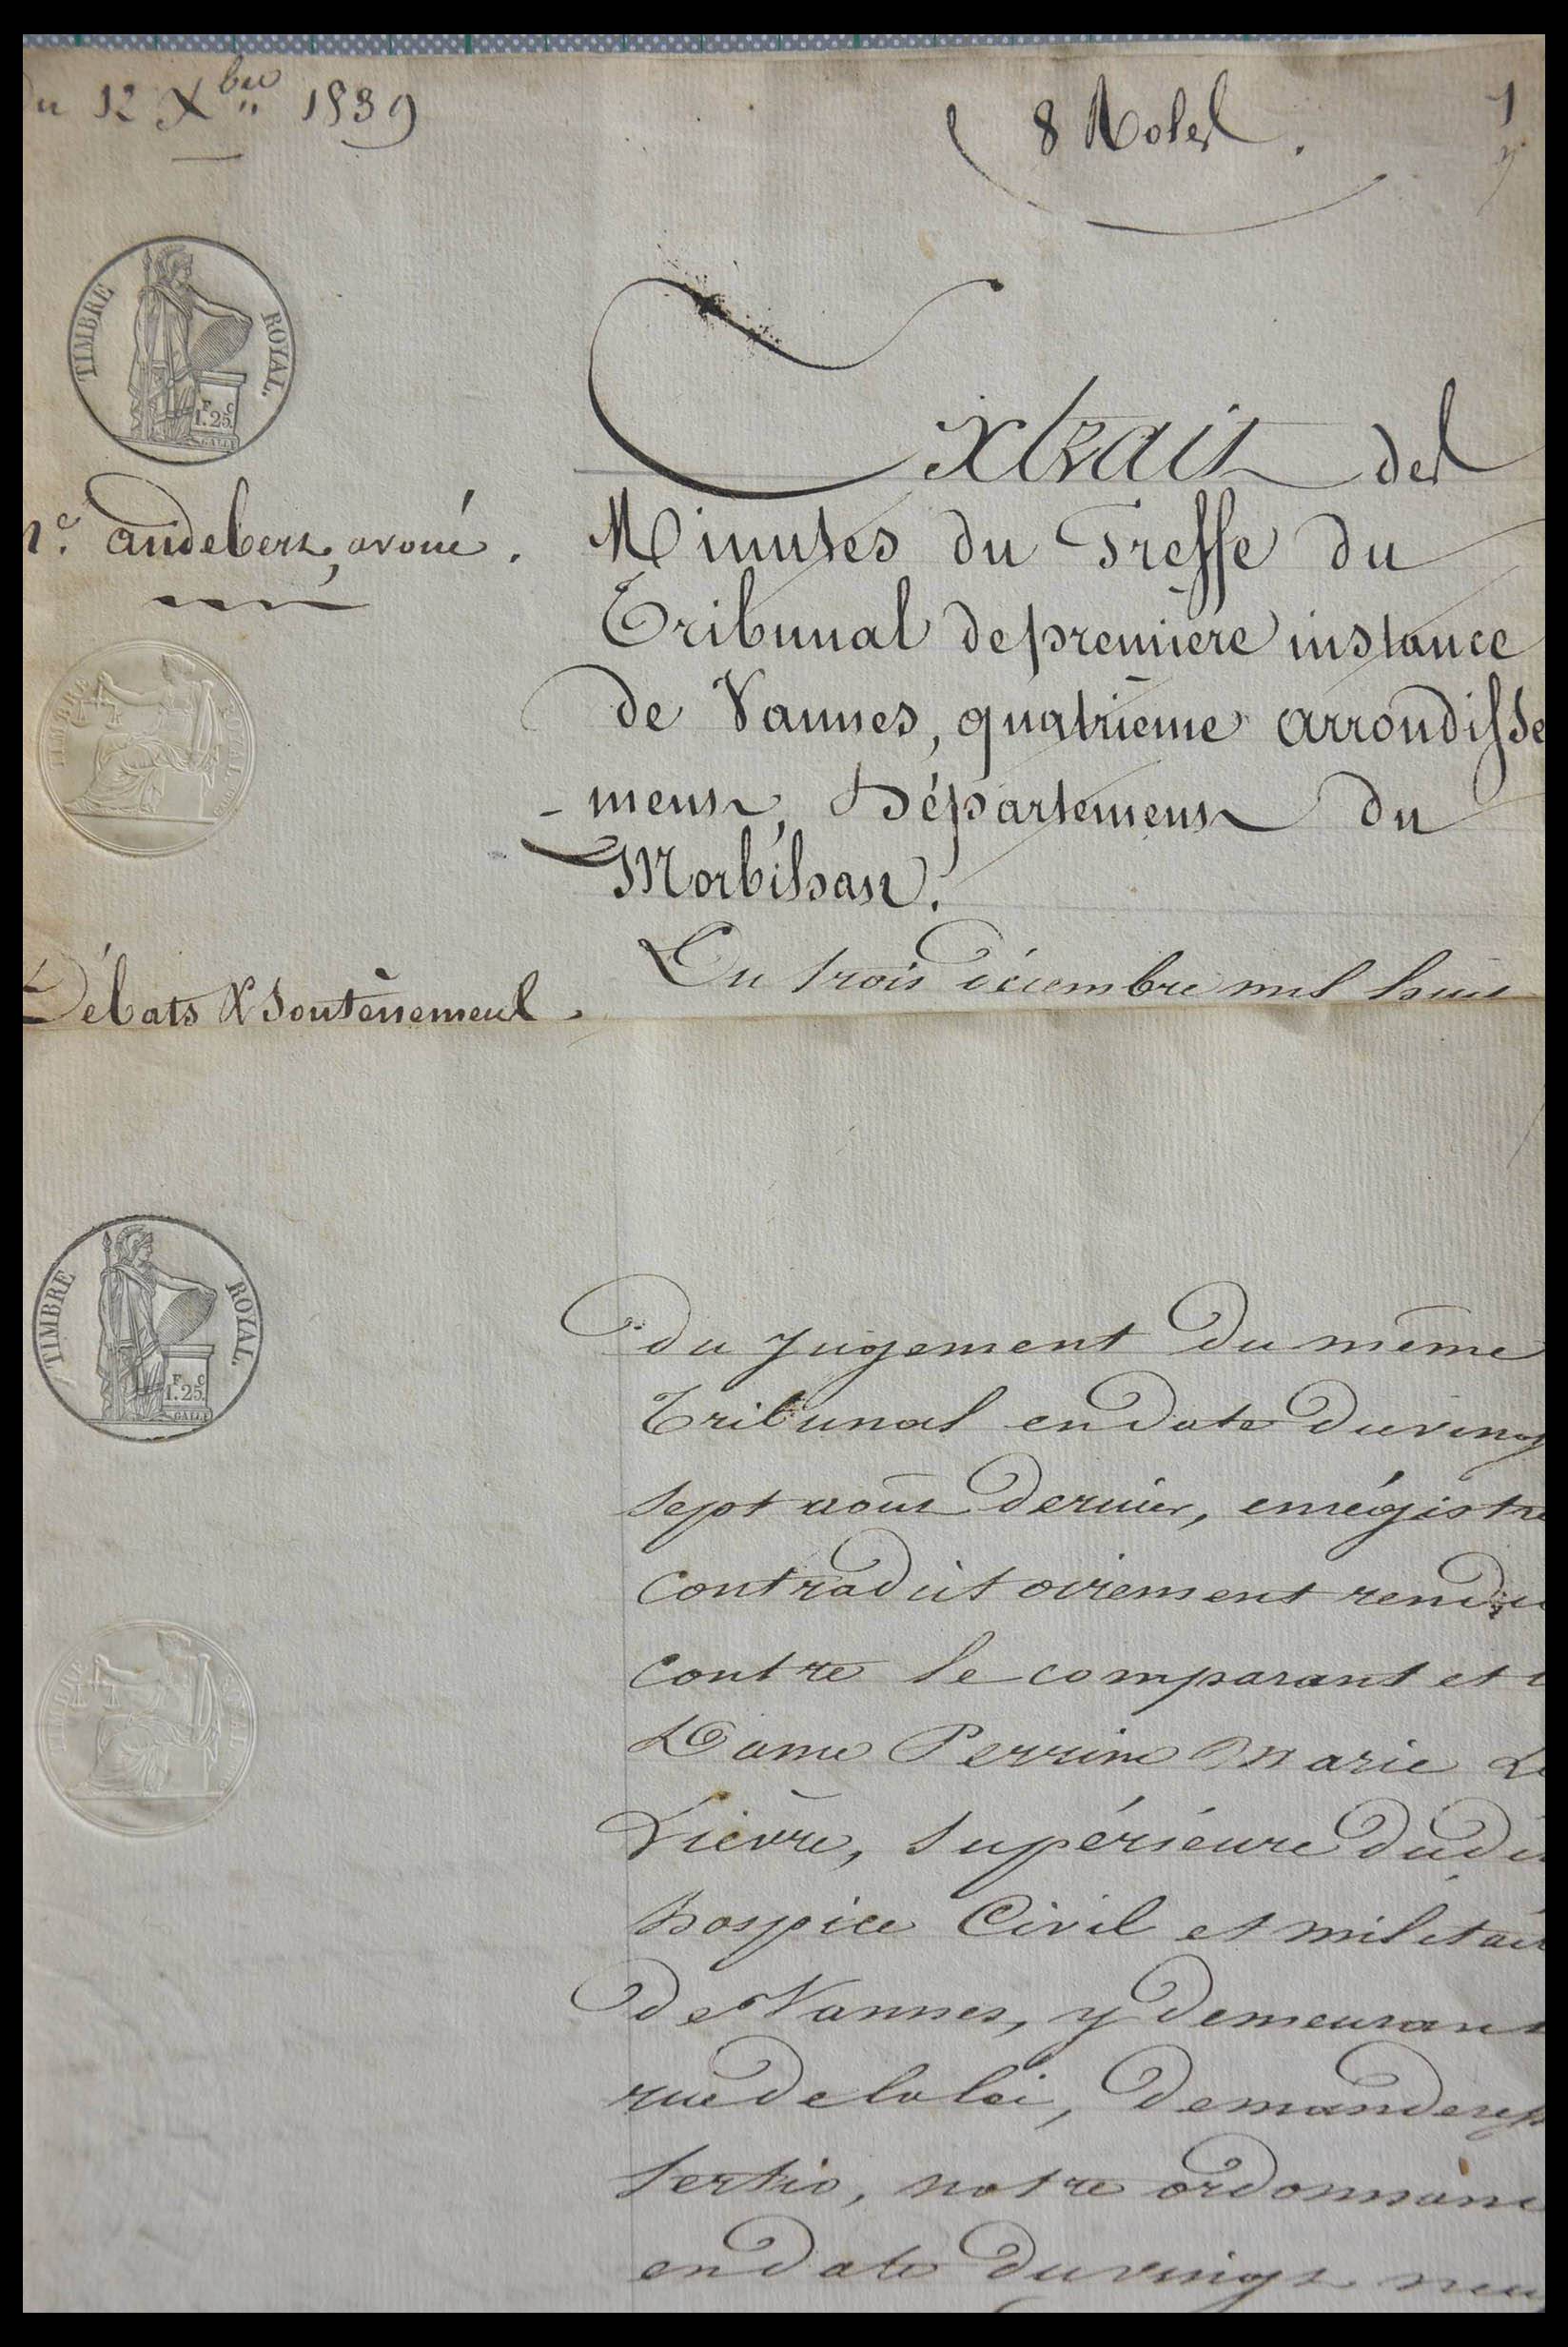 Du 12 Xbre 1839
8 Roles.
1
TIMBRE ROYAL.
F C
1.25
Me. Audebert, avoué.
Extrait des
Minutes du Greffe du
Tribunal de premiere instance
de Vannes, quatrième arrondisse
- ment, Département du
Morbihan.
TIMBRE ROYAL
Débats & Soutènement.
Du trois décembre mil huit
TIMBRE ROYAL.
F C
1.25.
du jugement du même
Tribunal en date du vingt
sept août dernier, enrégistré
contradictoirement rendu
contre le comparant et
Dame Perrine Marie Le
Lièvre, supérieure dudit
hospice Civil et militair
de Vannes, y demeurant
rue de la loi,
Tertio, notre ordonnanc
en date du vingt neu